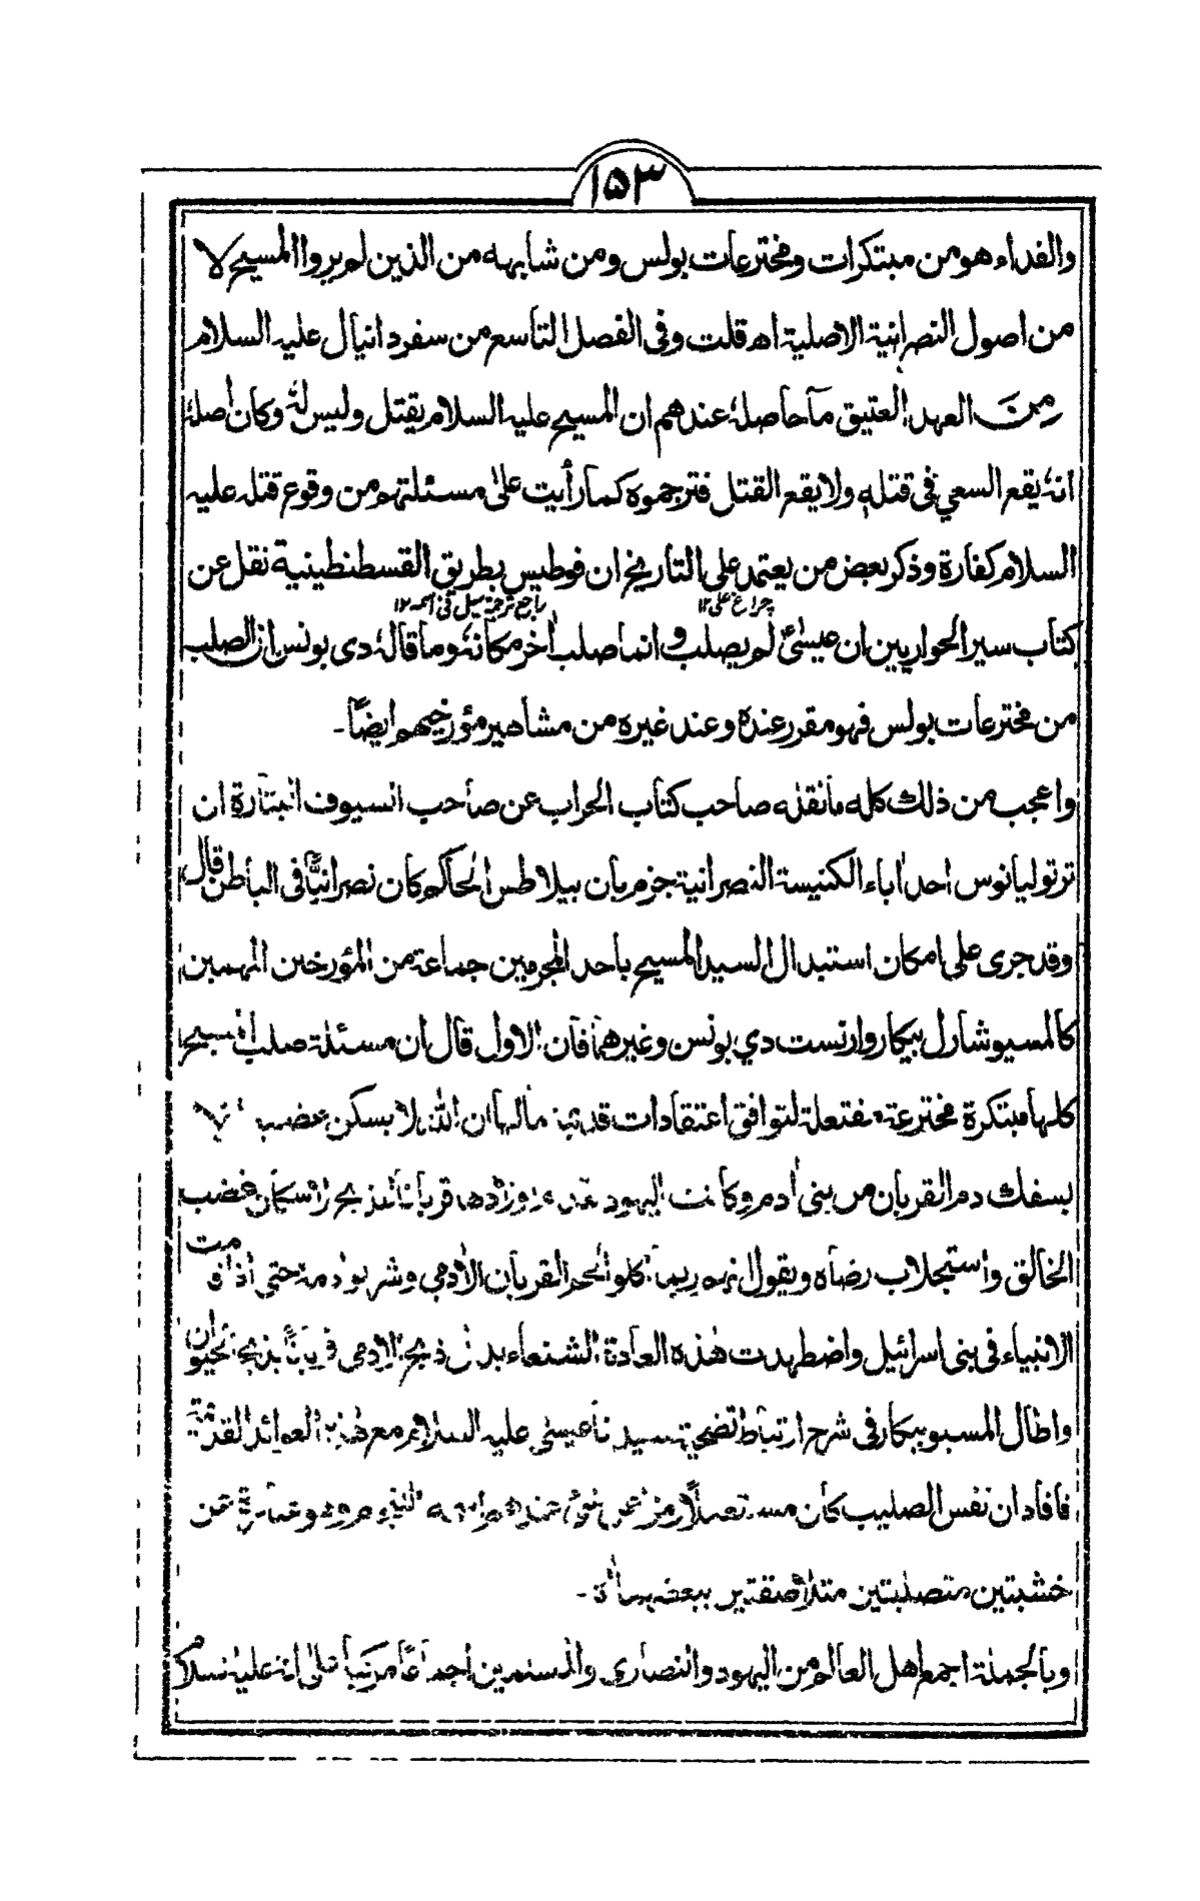 ١٥٣
والفداء هو من مبتكرات ومخترعات بولس ومن شابهه من الذين لم يروا المسيح لا
من اصول النصرانية الاصلية اھ قلت وفى الفصل التاسع من سفر دانيال عليه السلام
من العهد العتيق مآحاصلهٗ عندهم ان المسيح عليه السلام يقتل وليس لهٗ وكان اصلهٗ
انهٗ يقع السعي فى قتله ولا يقع القتل فترجموه كما رأيت على مسئلتهم من وقوع قتله عليه
السلام كفارة وذكر بعض من يعتمد على التاريخ ان فوطيس بطريق القسطنطينية نقل عن
چراغ على ١٢ راجع ترجمة سيل تحت اسمه ١٢
كتاب سير الحواريين ان عيسىٰ لم يصلب وانما صلب اٰخر مكانهٗ وما قالهٗ دى بونس ان الصلب
من مخترعات بولس فهو مقرر عنده وعند غيره من مشاهير مؤرخيهم ايضًا۔
واعجب من ذلك كله ما نقله صاحب كتاب الحراب عن صاحب السيوف البتارة ان
ترتوليانوس احد اٰباء الكنيسة النصرانية جزم بان بيلاطس الحاكم كان نصرانيًّا فى الباطن قال
وقد جرى على امكان استبدال السيد المسيح باحد المجرمين جماعة من المؤرخين المهمين
كالمسيو شارل بيكار وارنست دي بونس وغيرهما فان الاول قال ان مسئلة صلب المسيح
كلها مبتكرة مخترعة مفتعلة لتوافق اعتقادات قديمة مآلها ان الله لا يسكن غضبه الا
بسفك دم القربان من بنى اٰدم وكانت اليهود قربانا لتذبحه لاسكان غضب
الخالق واستجلاب رضاه ويقول كلوا لحم القربان الاٰدمى وشربوا دمه حتى اذا قامت
الانبياء فى بنى اسرائيل واضطهدت هٰذه العادة الشنعاء بدل ذبح الاٰدمى قربانًا بذبح الحيوان
واطال المسيو بيكار فى شرح ارتباط تضحية سيدنا عيسىٰ عليه السلام مع هٰذه العوائد القديمة
فافاد ان نفس الصليب كان عن
خشبتين متصلبتين متلاصقتين ببعضهما
وبالجملة اجمع اهل العالم من اليهود والنصارى والمسلمين اجماعًا مركبًا على انه عليه السلام